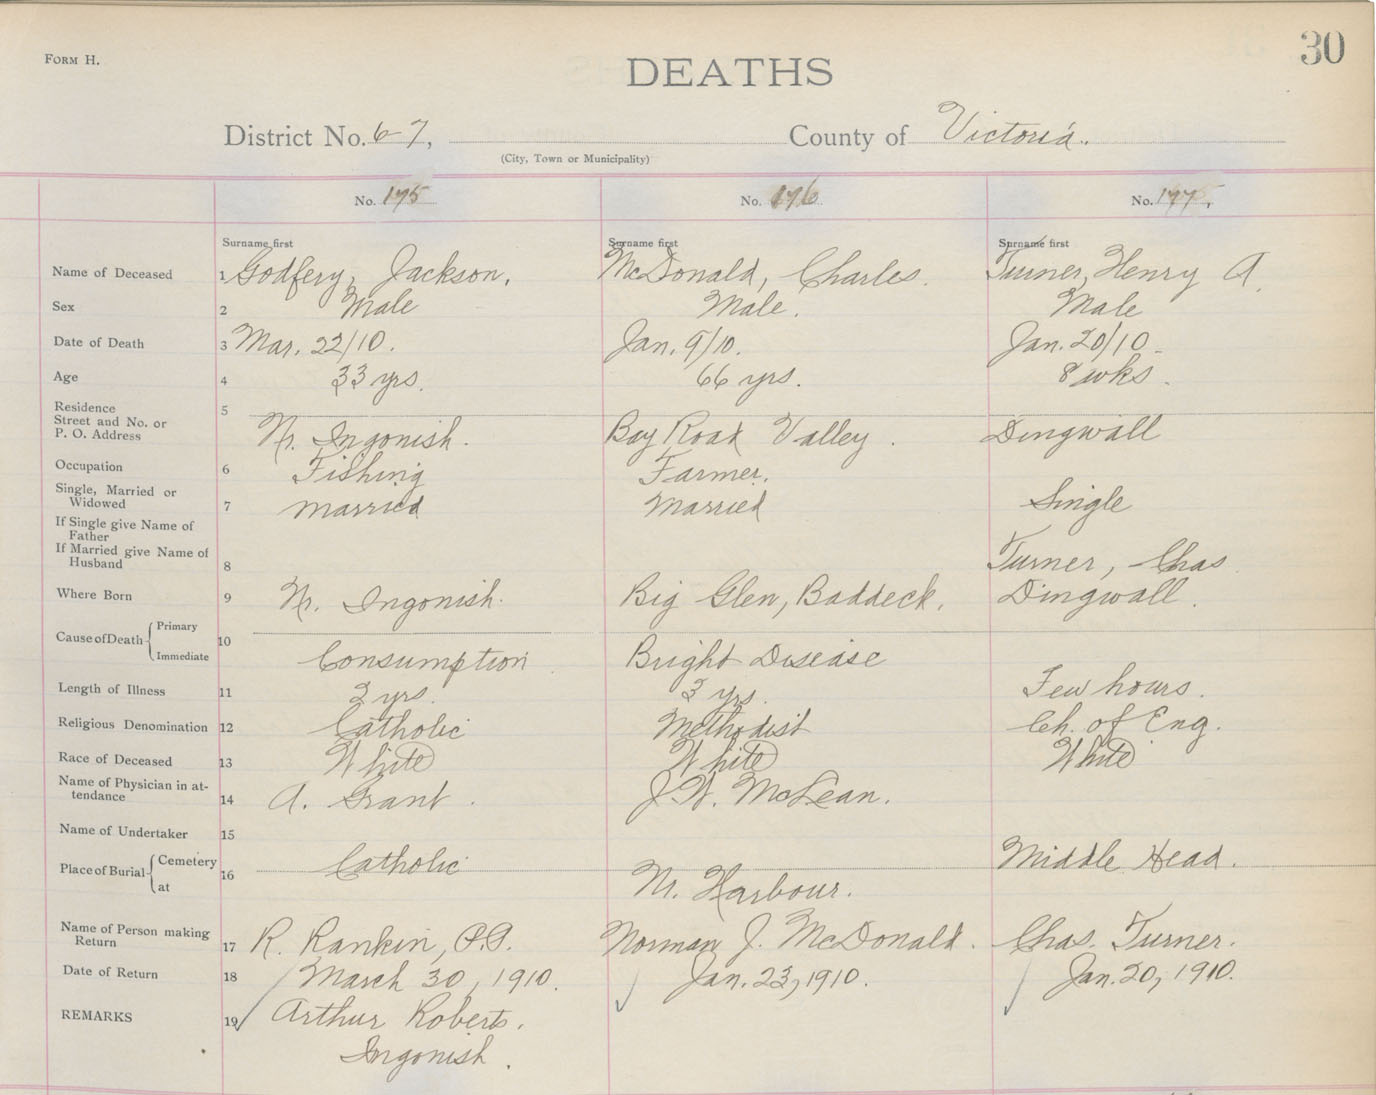 30
FORM H.
DEATHS
District No. 67, County of Victoria.
(City, Town or Municipality)
No. 175 No. 176 No. 177,
Surname first Surname first Surname first
Name of Deceased 1 Godfery, Jackson, McDonald, Charles. Turner, Henry A.
Sex 2 Male Male. Male
Date of Death 3 Mar. 22/10. Jan. 9/10. Jan. 20/10
Age 4 33 yrs. 66 yrs. 8 wks.
Residence 5
Street and No. or
P. O. Address Nr. Ingonish. Bay Road Valley. Dingwall
Occupation 6 Fishing Farmer.
Single, Married or
Widowed 7 Married Married Single
If Single give Name of
Father
If Married give Name of
Husband 8 Turner, Chas
Where Born 9 Nr. Ingonish. Big Glen, Baddeck. Dingwall.
Cause of Death Primary 10
Immediate Consumption Bright Disease
Length of Illness 11 2 yrs. 3 yrs. Few hours.
Religious Denomination 12 Catholic Methodist Ch. of Eng.
Race of Deceased 13 White White White
Name of Physician in at-
tendance 14 A. Grant. J. W. McLean.
Name of Undertaker 15
Place of Burial Cemetery 16 Catholic Middle Head.
at Nr. Harbour.
Name of Person making
Return 17 R. Rankin, P.P. Norman J. McDonald. Chas. Turner.
Date of Return 18 March 30, 1910. Jan. 23, 1910. Jan. 20, 1910.
REMARKS 19 Arthur Roberts,
Ingonish.